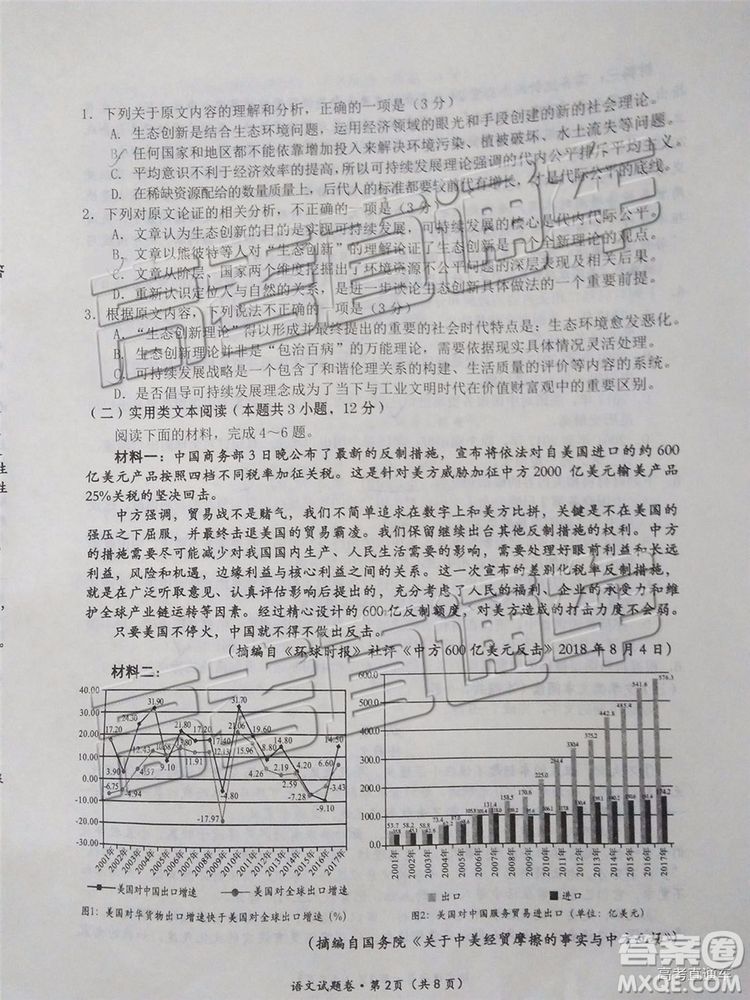 1．下列关于原文内容的理解和分析，正确的一项是（3分）
A．生态创新是结合生态环境问题，运用经济领域的眼光和手段创建的新的社会理论。
B．任何国家和地区都不能依靠单纯模仿来解决环境污染、植被破坏、水土流失等问题。
C．平均意识不利于经济效率的提高，所以可持续发展理论强调的代内公平排斥平均主义。
D．在稀缺资源配给的数量质量上，后代人的标准都要较前代有增长，这是代际公平的底线。
2．下列对原文论证的相关分析，不正确的一项是（3分）
A．文章从生态创新的实施谈到实现可持续发展，可持续发展的核心是代内代际公平。
B．文章以熊彼特等人对“生态创新”的理解论证了生态创新是一个创新理论的观点。
C．文章从阶层、国家两个维度挖掘出了环境资源不公平问题的深层表现及相关后果。
D．重新认识定位人与自然的关系，是进一步谈论生态创新具体做法的一个重要前提。
3．根据原文内容，下列说法不正确的一项是（3分）
A．“生态创新理论”得以形成并最终提出的重要的社会时代特点是：生态环境愈发恶化。
B．生态创新理论并非是“包治百病”的万能理论，需要根据现实具体情况灵活处理。
C．可持续发展战略是一个包含了和谐伦理关系的构建、生活质量的评价等内容的系统。
D．是否倡导可持续发展理念成为了当下与工业文明时代在价值财富观中的重大区别。
（二）实用类文本阅读（本题共3小题，12分）
阅读下面的材料，完成4～6题。
材料一：中国商务部3日晚公布了最新的反制措施，宣布将依法对自美国进口的约600
亿美元产品按照四档不同税率加征关税。这是针对美方威胁加征中方2000亿美元输美产品
25%关税的坚决回击。
中方强调，贸易战不是赌气，我们不简单追求在数字上和美方比拼，关键是不在美国的
强压之下屈服，并最终击退美国的贸易霸凌。我们保留继续出台其他反制措施的权利。中方
的措施需要尽可能减少对我国国内生产、人民生活需要的影响，需要处理好眼前利益和长远
利益，风险和机遇，边缘利益与核心利益之间的关系。这一次宣布的差别化税率反制措施，
就是在广泛听取意见、认真评估影响后提出的，充分考虑了人民的福利、企业的承受力和维
护全球产业链运转等因素。经过精心设计的600亿反制额度，对美方造成的打击力度不会弱。
只要美国不停火，中国就不得不做出反击。
（摘编自《环球时报》社评《中方600亿美元反击》2018年8月4日）
材料二：
40.00
30.00
20.00
10.00
0.00
-10.00
-20.00
-30.00
17.20
3.90
24.50
31.90
-6.75
-4.94
4.57
12.43
9.10
21.80
17.20
17.40
11.91
12.13
-4.80
-17.97
31.70
21.06
15.96
19.60
4.26
8.80
14.80
-7.28
-9.10
14.50
6.60
-3.43
2001年 2002年 2003年 2004年 2005年 2006年 2007年 2008年 2009年 2010年 2011年 2012年 2013年 2014年 2015年 2016年 2017年
美国对中国出口增速 美国对全球出口增速
图1：美国对华货物出口增速快于美国对全球出口增速（%）
600.0
500.0
400.0
300.0
200.0
100.0
0.0
53.7 58.2 58.9 131.4 158.5 170.6 225.0 284.4 330.4 375.2 442.8 485.4 541.6 576.3
174.2
2001年 2002年 2003年 2004年 2005年 2006年 2007年 2008年 2009年 2010年 2011年 2012年 2013年 2014年 2015年 2016年 2017年
出口 进口
图2：美国对中国服务贸易进出口（单位：亿美元）
（摘编自国务院《关于中美经贸摩擦的事实与中方立场》）
语文试题卷·第2页（共8页）
高考直通车
答案圈
高考直通车